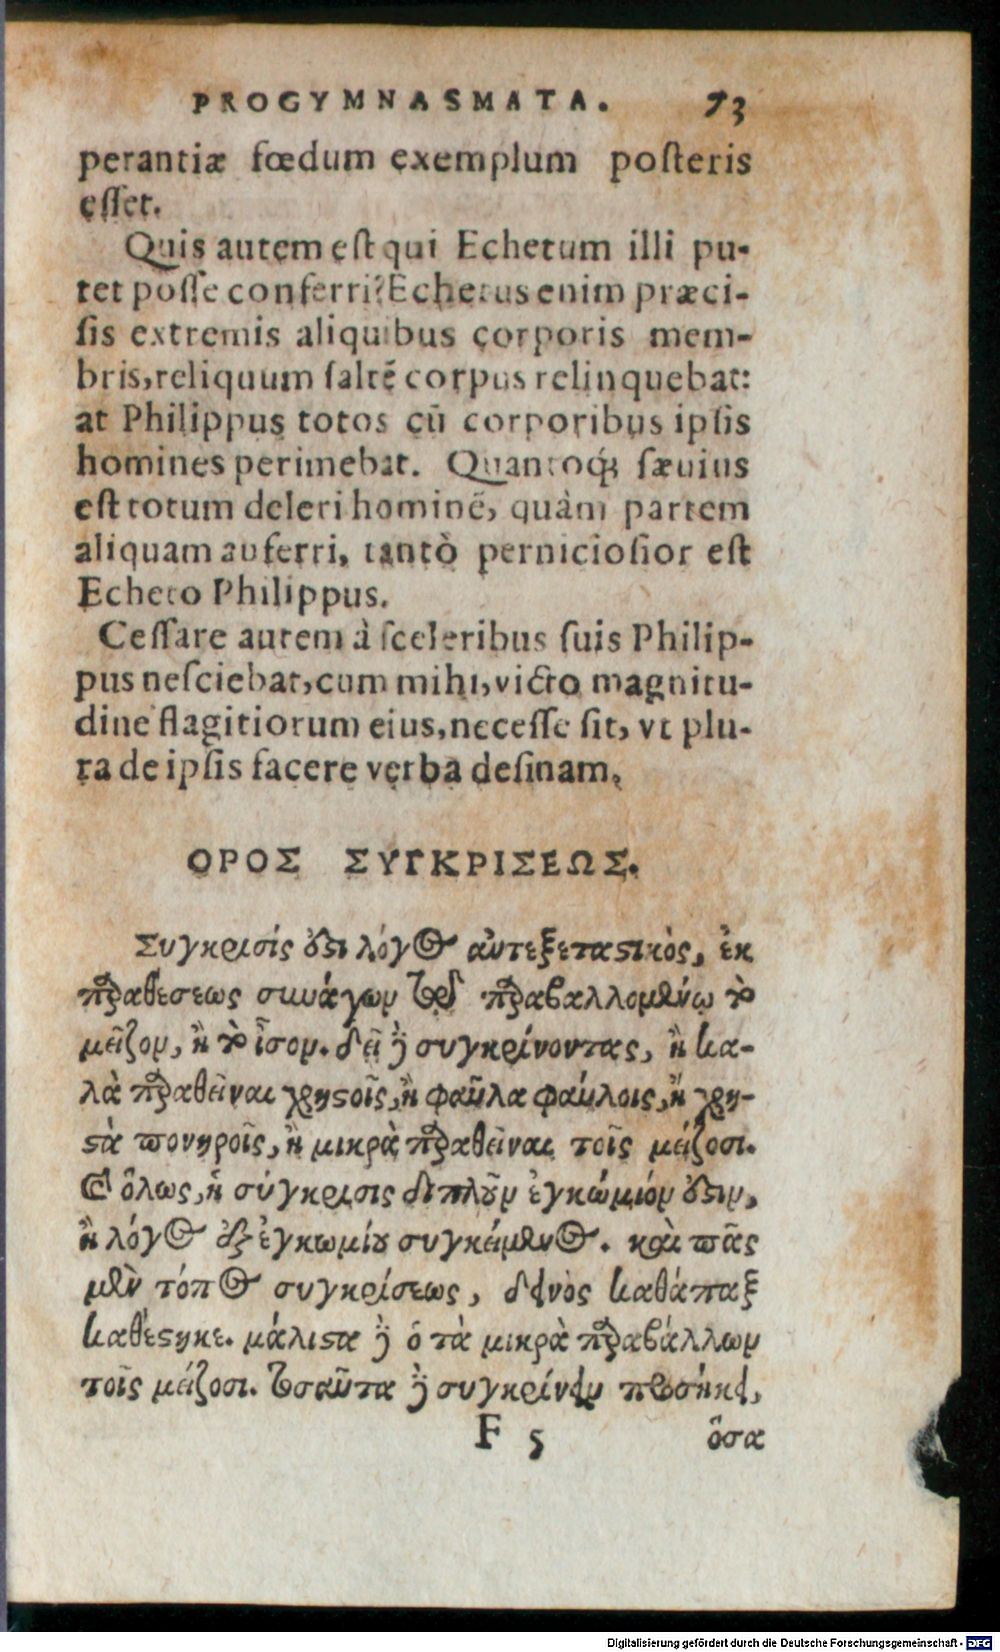 PROGYMNASMATA. 73
perantiæ fœdum exemplum posteris
esset.
Quis autem est qui Echetum illi pu-
tet posse conferri? Echetus enim præci-
sis extremis aliquibus corporis mem-
bris, reliquum saltẽ corpus relinquebat:
at Philippus totos cũ corporibus ipsis
homines perimebat. Quantoq́; sæuius
est totum deleri hominẽ, quàm partem
aliquam auferri, tantò perniciosior est
Echeto Philippus.
Cessare autem à sceleribus suis Philip-
pus nesciebat, cum mihi, victo magnitu-
dine flagitiorum eius, necesse sit, vt plu-
ra de ipsis facere verba desinam.
ΟΡΟΣ ΣΥΓΚΡΙΣΕΩΣ.
Συγκρισίς ὅςι λόγος ἀντεξεταςικὸς, ἐκ
παραθέσεως συνάγων τῷ παραβαλλομένῳ τὸ
μεῖζον, ἢ τὸ ἶσον. δεῖ δὲ συγκρίνοντας, ἢ κα-
λὰ παραθεῖναι χρηςοῖς, ἢ φαῦλα φαύλοις, ἢ χρη-
ςὰ πονηροῖς, ἢ μικρὰ παραθεῖναι τοῖς μείζοσι.
καὶ ὅλως, ἡ σύγκρισις διπλοῦν ἐγκώμιόν ὅςιν,
ἢ λόγος ἐξ ἐγκωμίου συγκείμενος. καὶ πᾶς
μὲν τόπος συγκρίσεως, δεινὸς καθάπαξ
καθέςηκε. μάλιςα δὲ ὁ τὰ μικρὰ παραβάλλων
τοῖς μείζοσι. τοσαῦτα δὲ συγκρίνειν προσήκει,
F 5 ὅσα
Digitalisierung gefördert durch die Deutsche Forschungsgemeinschaft - DFG